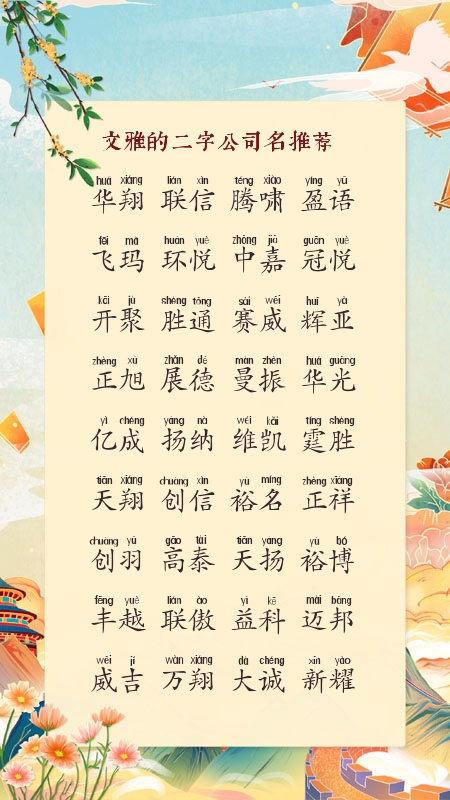 文雅的二字公司名推荐
huá xiáng lián xìn téng xiào yíng yǔ
华翔 联信 腾啸 盈语
fēi mǎ huán yuè zhōng jiā guān yuè
飞玛 环悦 中嘉 冠悦
kāi jù shèng tōng sài wēi huī yà
开聚 胜通 赛威 辉亚
zhèng xù zhǎn dé màn zhèn huá guāng
正旭 展德 曼振 华光
yì chéng yáng nà wéi kǎi tíng shèng
亿成 扬纳 维凯 霆胜
tiān xiáng chuàng xìn yù míng zhèng xiáng
天翔 创信 裕名 正祥
chuàng yǔ gāo tài tiān yáng yù bó
创羽 高泰 天扬 裕博
fēng yuè lián ào yì kē mài bāng
丰越 联傲 益科 迈邦
wēi jí wàn xiáng dà chéng xīn yào
威吉 万翔 大诚 新耀